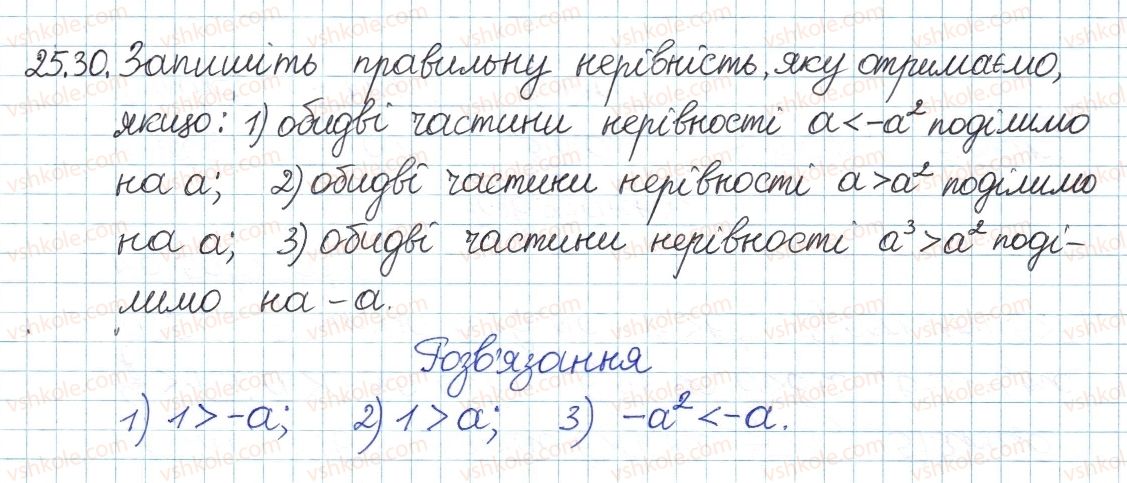 25.30. Запишіть правильну нерівність, яку отримаємо,
якщо: 1) обидві частини нерівності a<-a² поділимо
на a; 2) обидві частини нерівності a>a² поділимо
на a; 3) обидві частини нерівності a³>a² поді-
лимо на -a.
Розв'язання
1) 1>-a; 2) 1>a; 3) -a²<-a.